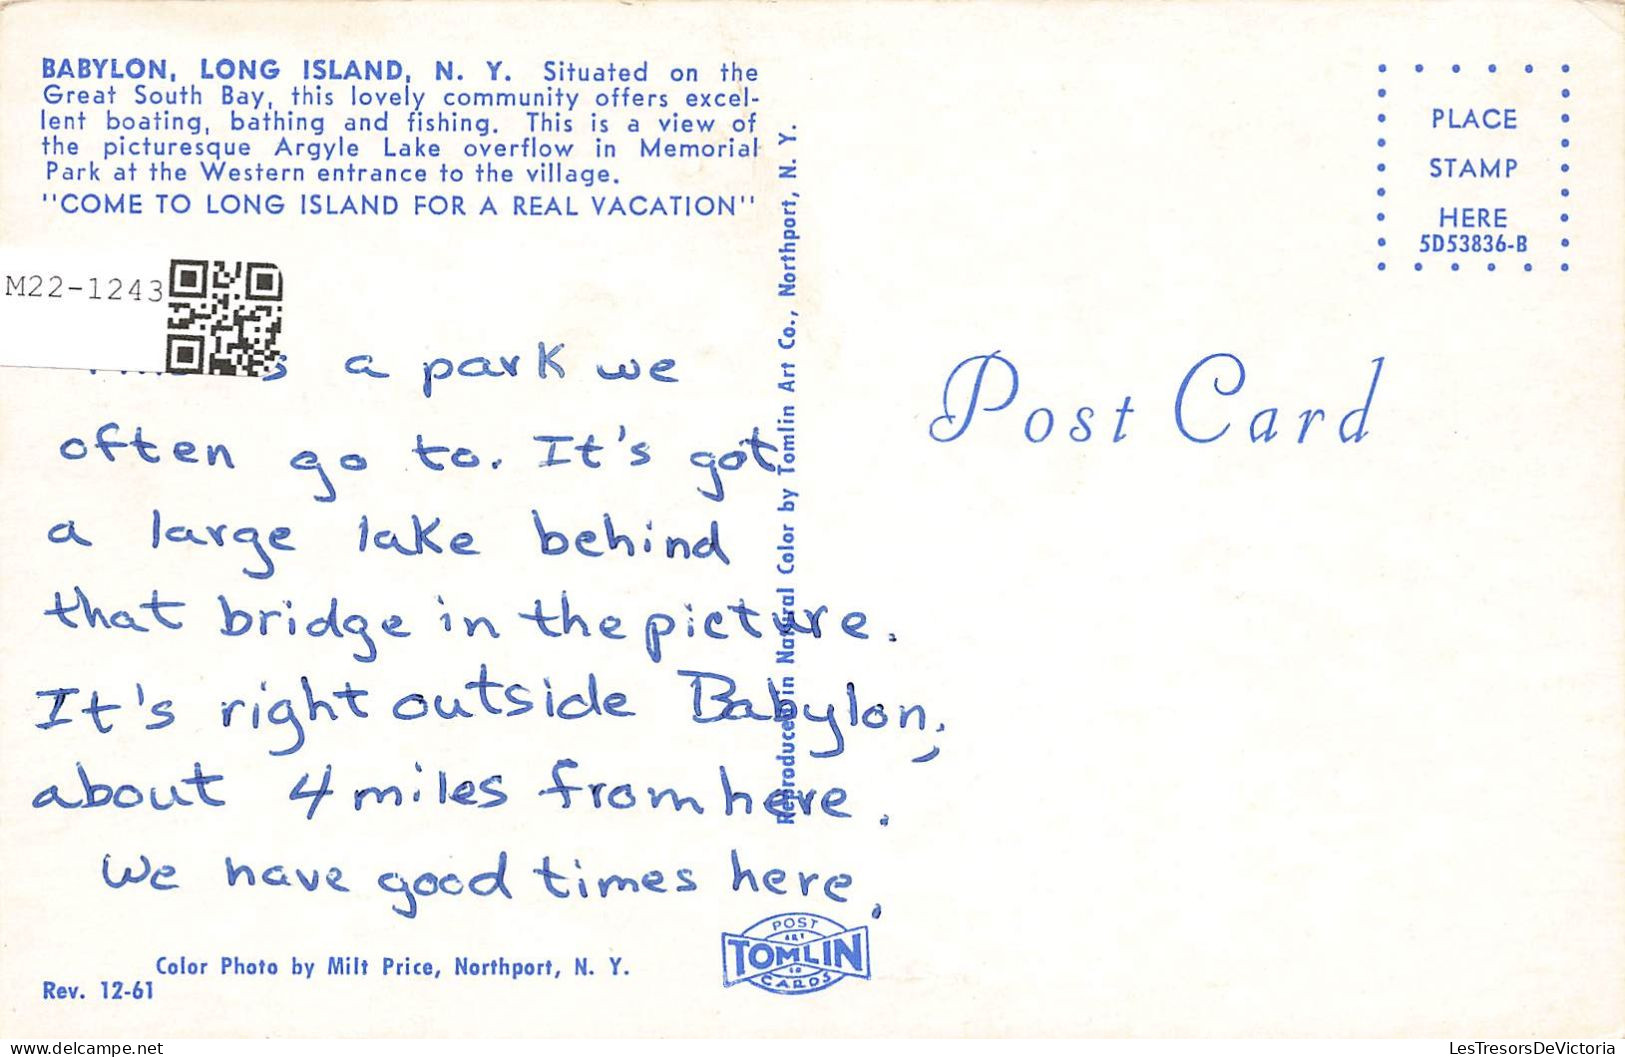 BABYLON, LONG ISLAND, N. Y. Situated on the
Great South Bay, this lovely community offers excel-
lent boating, bathing and fishing. This is a view of
the picturesque Argyle Lake overflow in Memorial
Park at the Western entrance to the village.
"COME TO LONG ISLAND FOR A REAL VACATION"
M22-1243
a park we
often go to. It's got
a large lake behind
that bridge in the picture.
It's right outside Babylon,
about 4 miles from here.
We have good times here.
Color Photo by Milt Price, Northport, N. Y.
Rev. 12-61
Reproduced in Natural Color by Tomlin Art Co., Northport, N. Y.
POST
ART
TOMLIN
CARDS
PLACE
STAMP
HERE
5D53836-B
Post Card
delcampe.net
LesTresorsDeVictoria